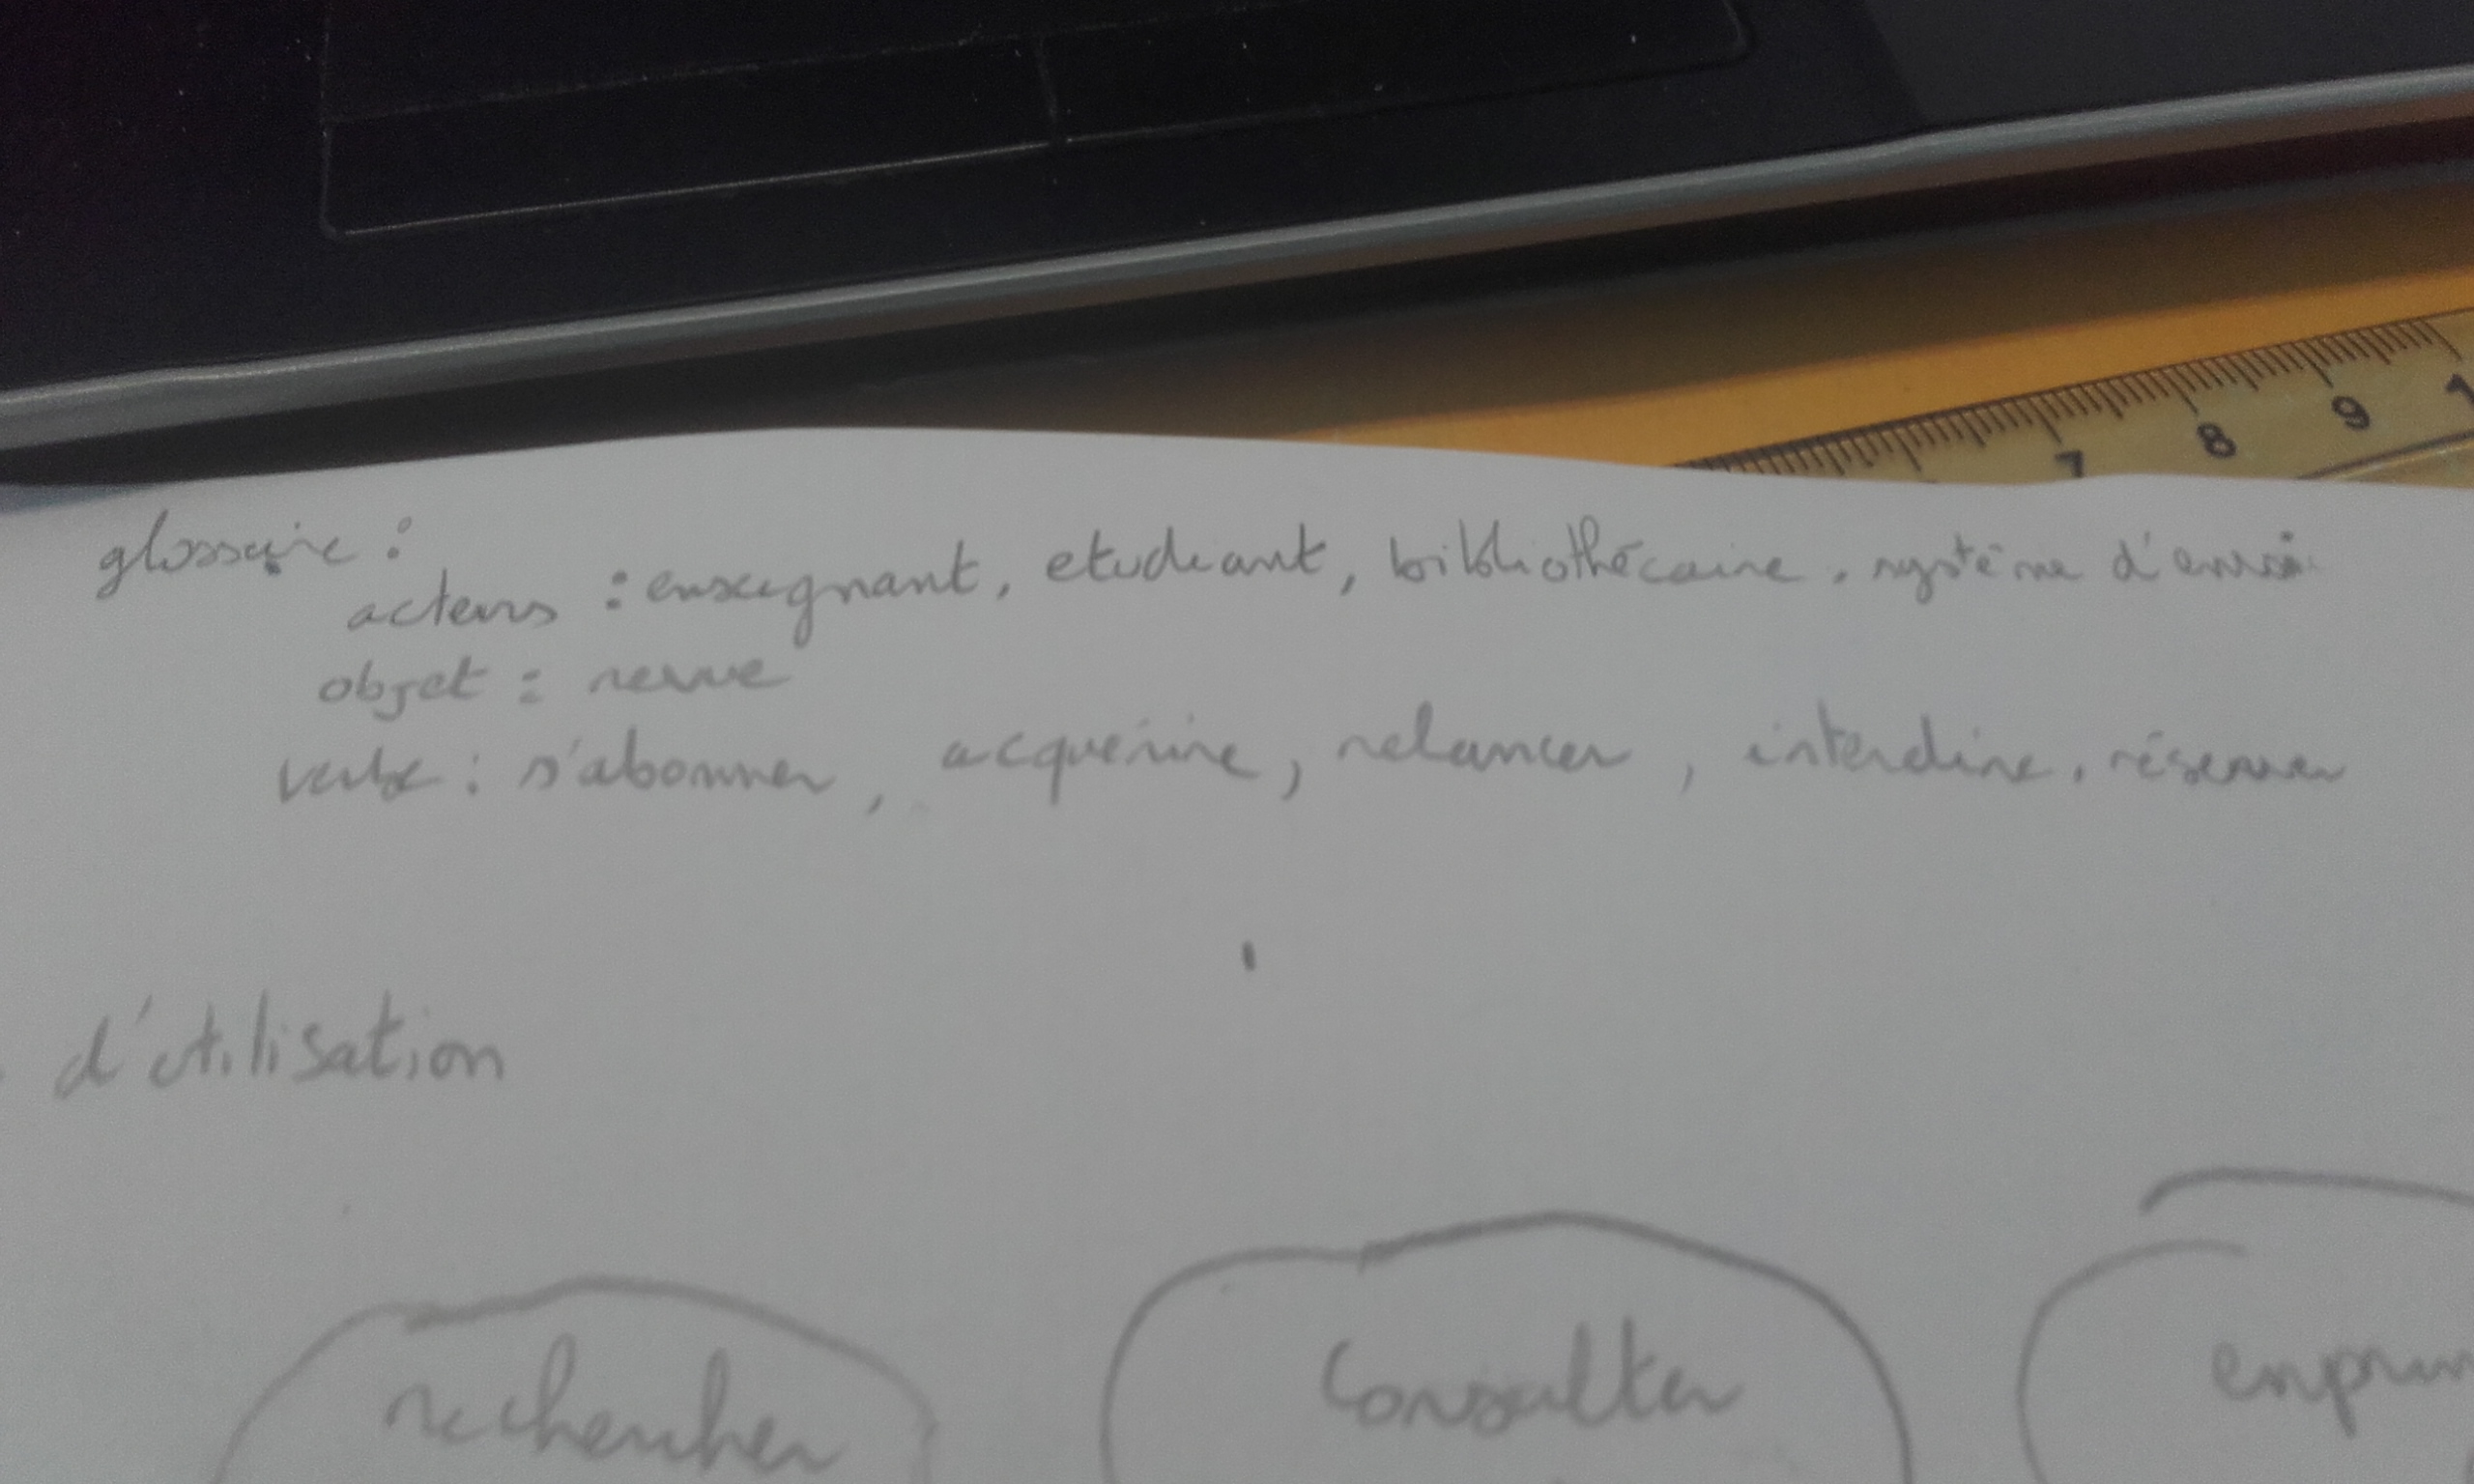 7 8 9 1
glossaire :
acteurs : enseignant, etudiant, bibliothécaire, système d'envoi
objet : revue
verbe : s'abonner, acquérire, relancer, interdire, réserver
d'utilisation
rechercher
Consulter
emprun